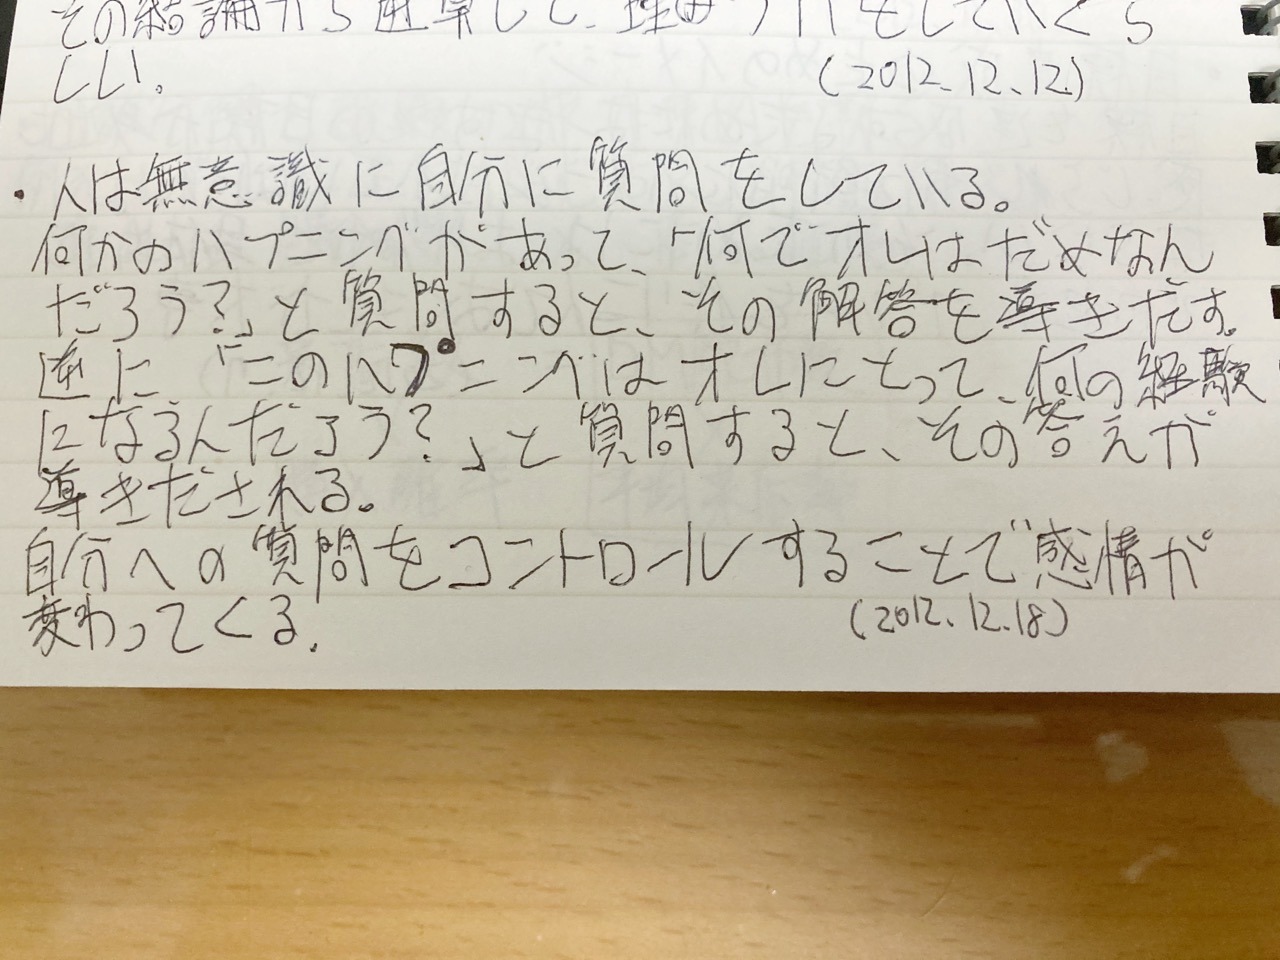 その結論から逆算して、理由づけをしていくら
しい。
(2012.12.12)
・人は無意識に自分に質問をしている。
何かのハプニングがあって、「何でオレはだめなん
だろう?」と質問すると、その解答を導きだす。
逆に「このハプニングはオレにとって、何の経験
になるんだろう?」と質問すると、その答えが
導きだされる。
自分への質問をコントロールすることで感情が
変わってくる.
(2012.12.18)